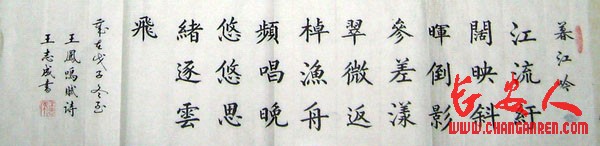 暮江吟
江流紆
闊映斜
暉倒影
參差漾
翠微返
棹漁舟
頻唱晚
悠悠思
緒逐雲
飛
歲在戊子冬至
王鳳鳴賦诗
王志成書
长安人
WWW.CHANGANREN.COM